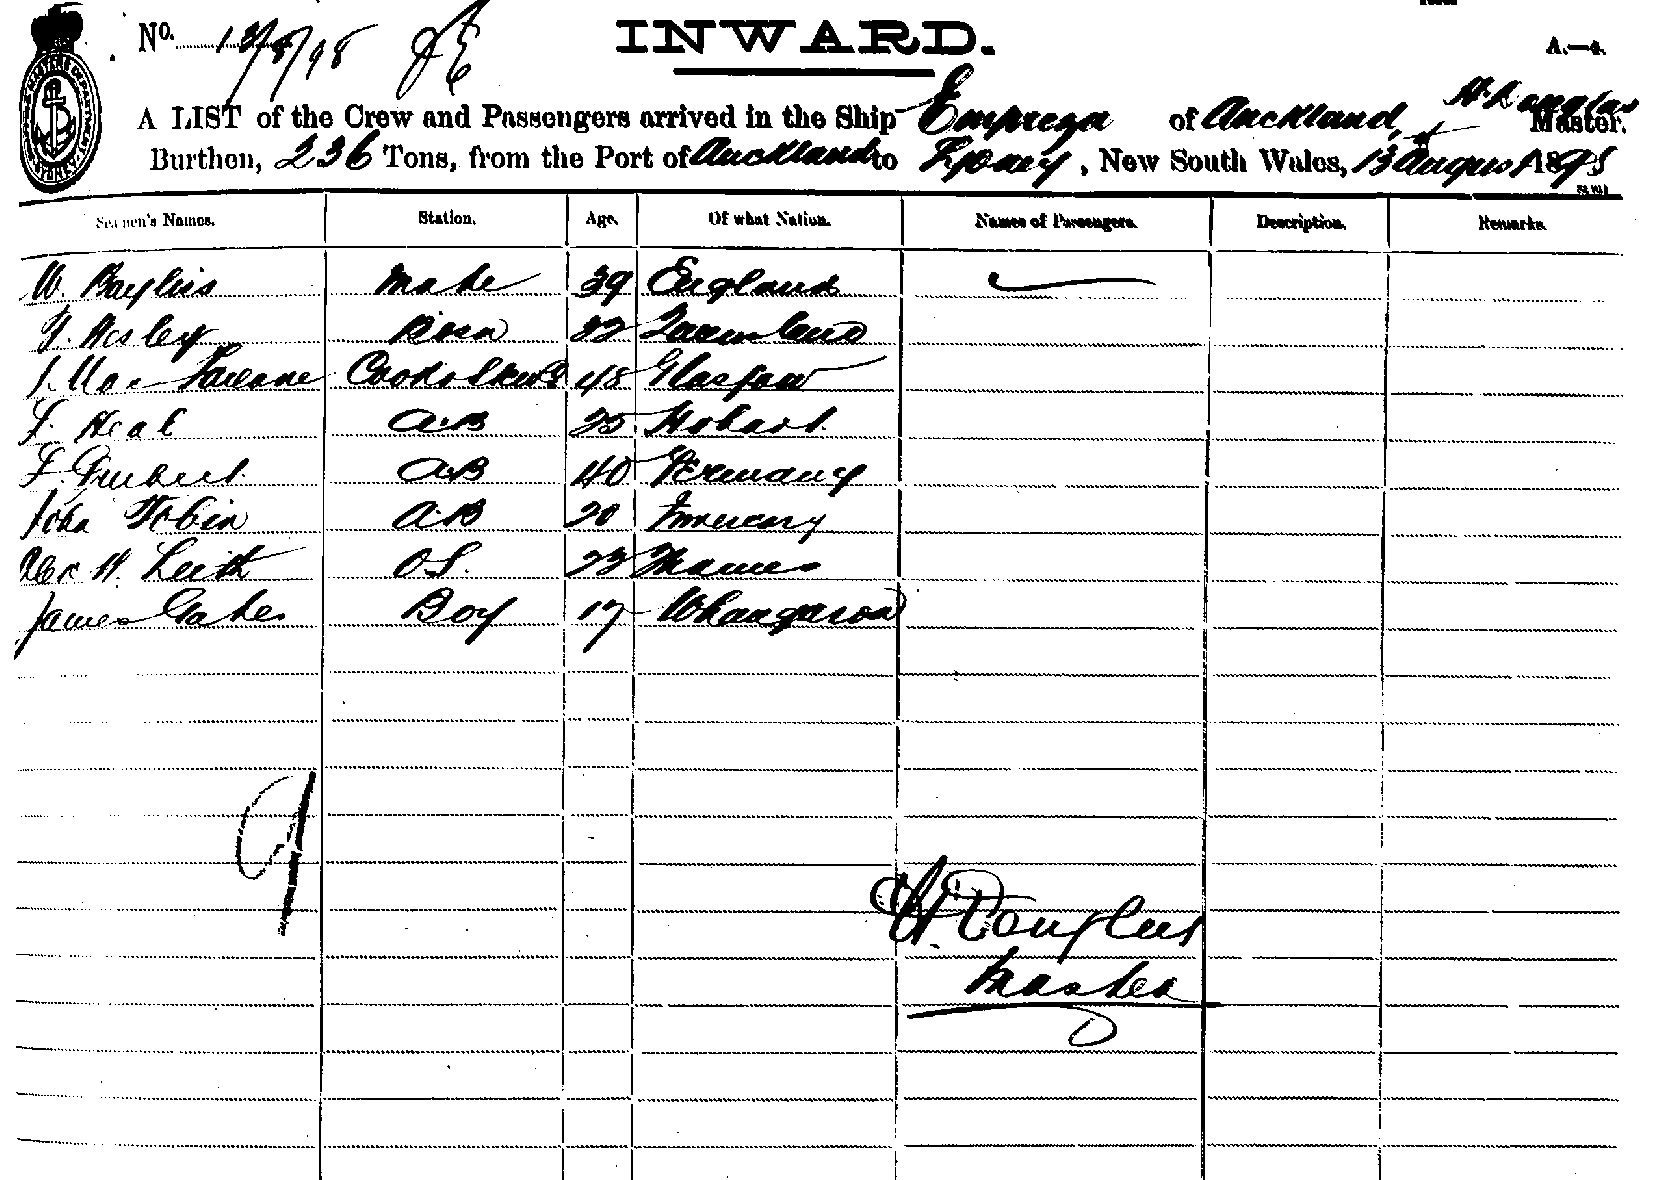 No. 13/8/98
INWARD.
A.—4.
A LIST of the Crew and Passengers arrived in the Ship Empreza of Auckland, H. Douglas Master.
Burthen, 236 Tons, from the Port of Auckland to Sydney, New South Wales, 13 August 1898
Seamen's Names. Station. Age. Of what Nation. Names of Passengers. Description. Remarks.
W. Bayliss Mate 39 England
Bosn
J. MacFarlane Cook & Stewd 48 Glasgow
F. Heal A.B 25 Hobart.
A.B 40 Germany
John Tobin A.B 20
Alex H. Leith O.S. 23 Thames
James Oakes Boy 17 Whangaroa
H. Douglas
Master